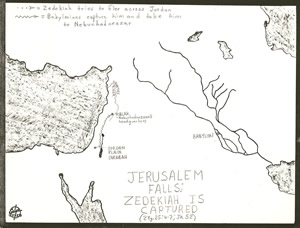 = Zedekiah tries to flee across Jordan
= Babylonians capture him and take him
to Nebuchadnezzar
RIBLAH
Nebuchadnezzar's
headquarters
BABYLON
JORDAN
PLAIN
JERUSALEM
FALLS:
ZEDEKIAH IS
CAPTURED